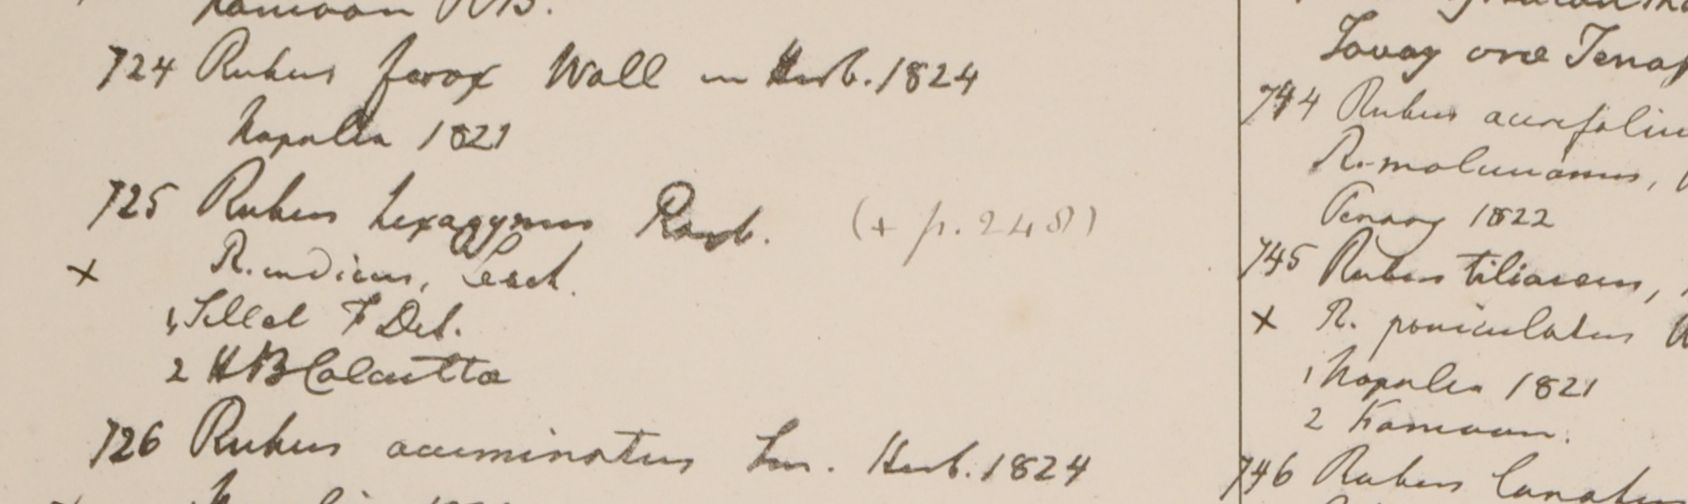 Kamoon R.B.
724 Rubus ferox Wall in Herb. 1824
Napalia 1821
725 Rubus hexagynus Roxb. (+ p. 248)
x R. indicus, Lesch.
1, Sillet F De S.
2 HB Calcutta
726 Rubus acuminatus Sm. Herb. 1824
Tavoy
744 Rubus acerifoliu
R. moluccanus,
Penang 1822
745 Rubus tiliaceus,
x R. paniculatus
1 Napalia 1821
2 Kamaon.
746 Rubus lanatus